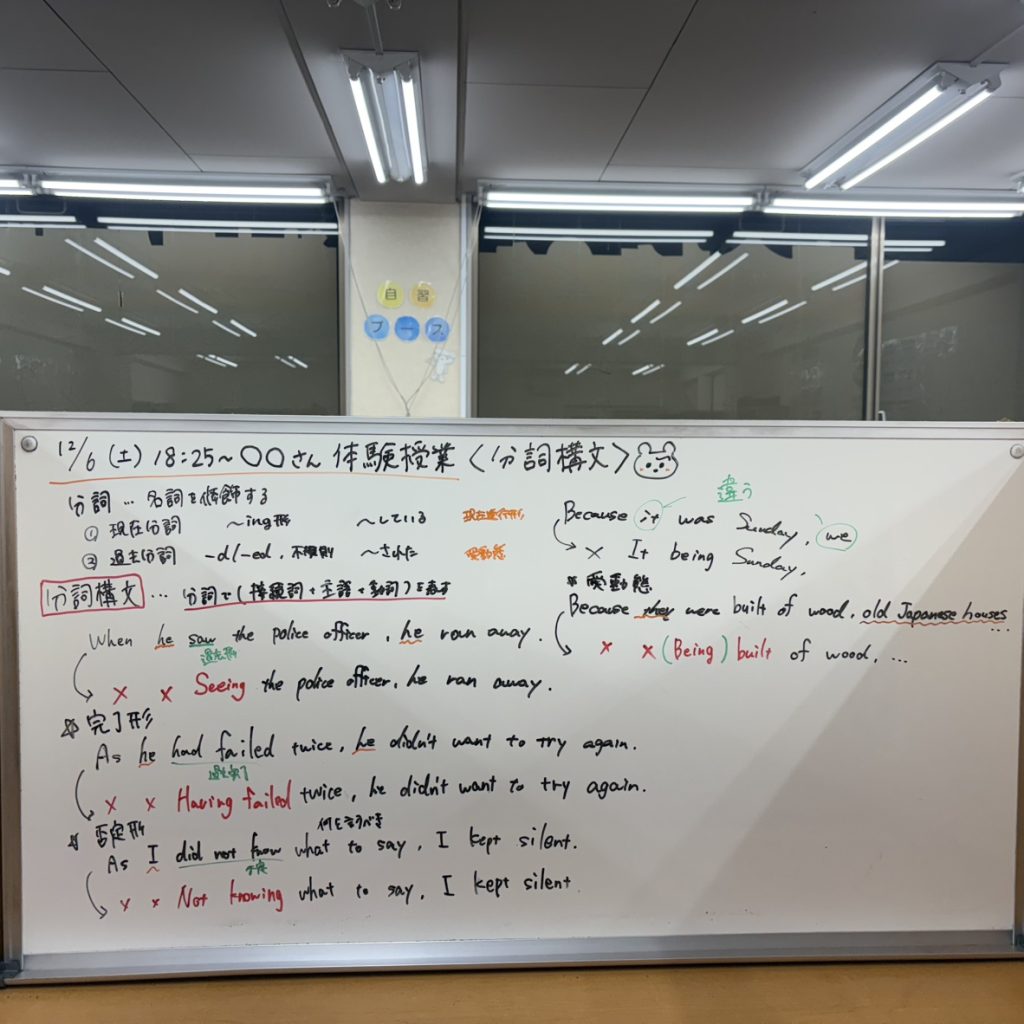 自習
ブース
12/6 (土) 18:25~ 〇〇さん 体験授業 〈分詞構文〉
分詞 … 名詞を修飾する
① 現在分詞 ~ing形 ~している 現在進行形
② 過去分詞 -d/-ed, 不規則 ~された 受動態
分詞構文 … 分詞で(接続詞+主語+動詞)を表す
When he saw the police officer, he ran away.
過去形
× × Seeing the police officer, he ran away.
☆ 完了形
As he had failed twice, he didn't want to try again.
過去完了
× × Having failed twice, he didn't want to try again.
☆ 否定形
何を言うべき
As I did not know what to say, I kept silent.
否定
× × Not knowing what to say, I kept silent
違う
Because it was Sunday, we
× It being Sunday,
* 受動態
Because they were built of wood, old Japanese houses
...
× × (Being) built of wood, ...